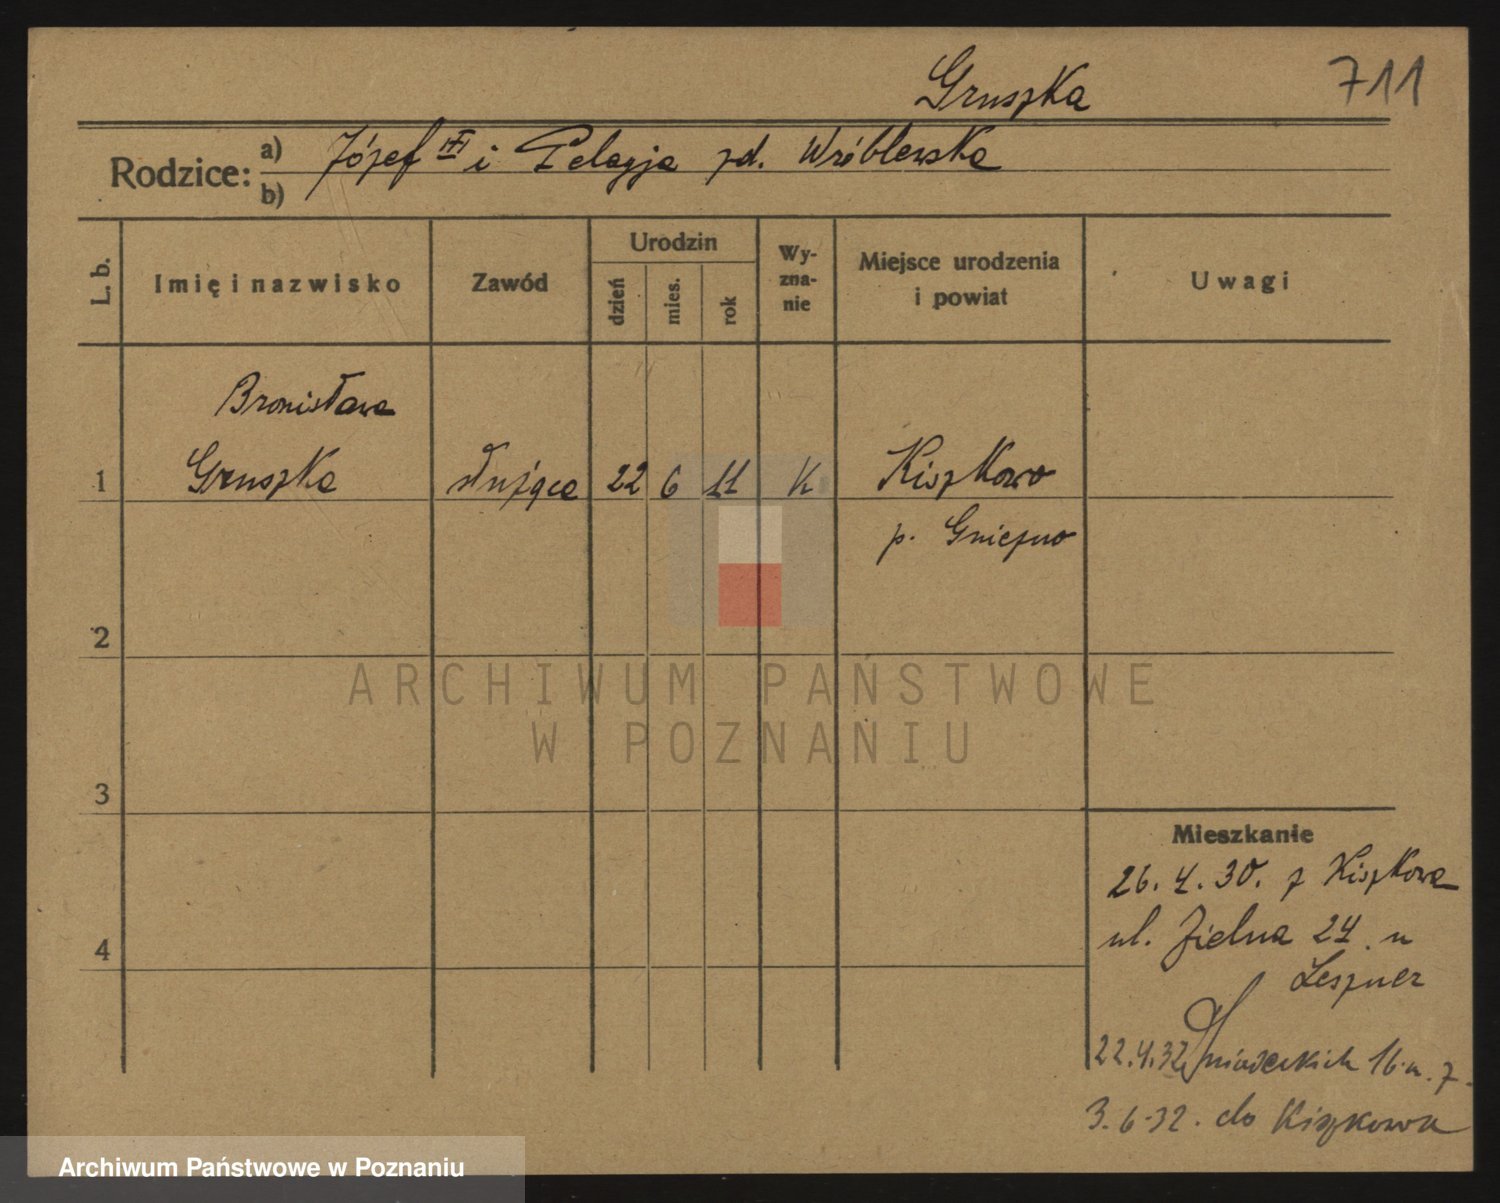 Gruszka
711
Rodzice:
a) Józef III i Pelagja zd. Wróblewska
b)
L. b.
Imię i nazwisko
Zawód
Urodzin
dzień
mies.
rok
Wy-
zna-
nie
Miejsce urodzenia
i powiat
Uwagi
Bronisława
1 Gruszka służąca 22 6 11 K Kiszkowo
p. Gniezno
2
3
4
ARCHIWUM PAŃSTWOWE
W POZNANIU
Mieszkanie
26. 4. 30. z Kiszkowa
ul. Zielna 24 u
22.4.32 Śniadeckich 16 m. 7.
3. 6-32. do Kiszkowa
Archiwum Państwowe w Poznaniu